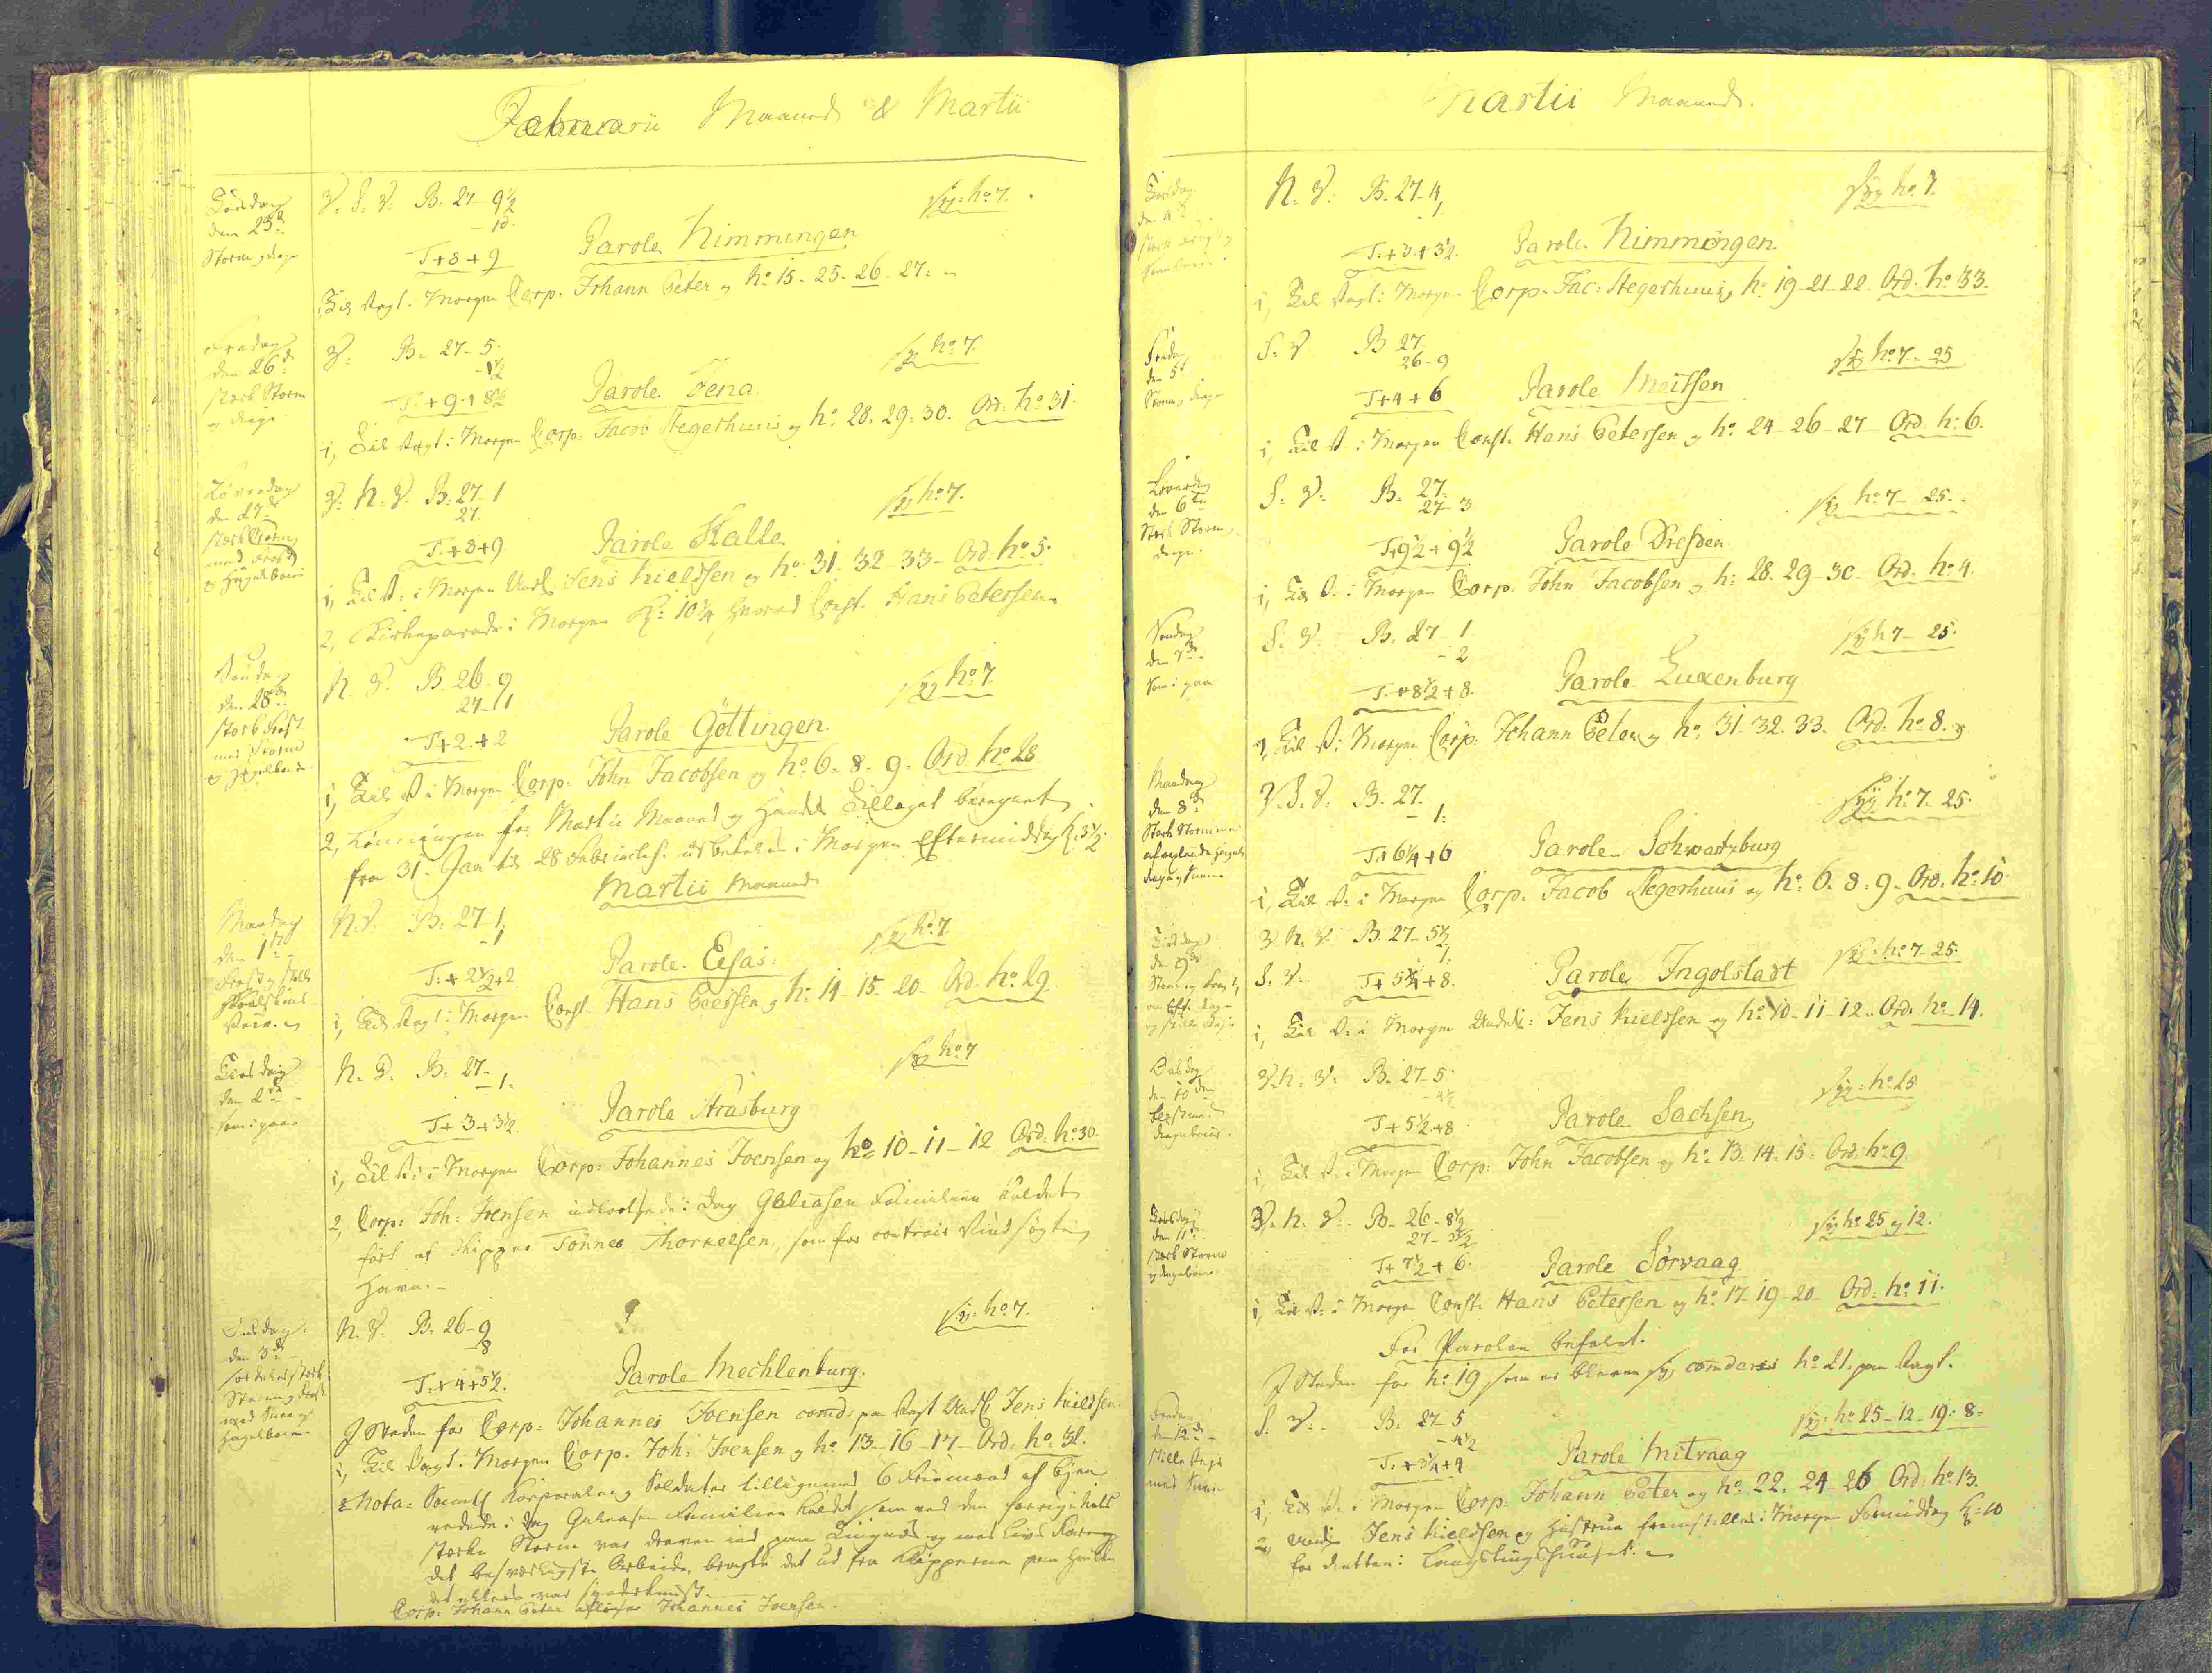 Februarii Maaned & Martii
Torsdag
den 25de
Storm og Regn
V. S. V. B. 27-9½
-10.
Syg: No 7.
T+8+9
Parole Nimmingen
Til Vagt i Morgen Corp: Johann Peter og No 15-25-26-27.
Fredag
den 26de
stærk Storm
og Regn
V: B. 27-5.
-1½
Syg No 7.
T+9+8½
Parole Jena
1, Til Vagt i Morgen Corp: Jacob Stegerhuus og No 28. 29. 30. Ord: No 31.
Løverdag
den 27de
stærk Storm
med Frost
og Hagelbøier
V: N. V. B. 27-1
27.
Syg No 7.
T+8+9.
Parole Halle
1, Til V. i Morgen Undf. Jens Nieldsen og No 31-32-33- Ord: No 5.
2, Kirkeparade i Morgen Kl: 10¼ hvorved Const. Hans Petersen
den 28de
stærk Frost
med Storm
N. V. B. 26-9
27-11
Syg No 7.
T+2+2
Parole Göttingen.
1, Til V. i Morgen Corp: John Jacobsen og No 6. 8. 9. Ord No 28
2, Lønningen for Martii Maaned og Tillæget beregnet
fra 31. Jan til 28 Febr incl. udbetales i Morgen Eftermiddag K. 3½.
Martii Maaned
Mandag
den 1te
Frost og stille
N. V. B. 27 1.
-1
Syg No 7
T+2½+2
Parole Eisas:
1, Til Vagt i Morgen Const. Hans Petersen og No 14-15-20- Ord. No 29
Tirsdag
den 2de
som i gaar
N. V. B. 27-
-1.
Syg No 7
T+3+3½.
Parole Strasburg
1, Til V. i Morgen Corp: Johannes Joensen og No 10-11-12 Ord. No 30.
2, Corp: Joh: Joensen indlodsede i Dag Galeasen Familien kaldet
ført af Skipper Tönnes Thorkelsen, som for contrair Vind søgte
Havn.
Onsdag
den 3de
Storm og Frost
med Snee og
Hagelbøier
N. V. B. 26-9
-8
Syg: No 7.
T+4+5½.
Parole Mechlenburg.
I Steden for Corp: Johannes Joensen comd: paa Vagt Undf. Jens Nieldsen.
1, Til Vagt i Morgen Corp. Joh: Joensen og No 13-16-17- Ord. No 32.
Nota: Samtl. Korporaler og Soldater tilligemed 6 Friemænd af Byen
redede i Dag Galeasen Familien kaldet som ved den foregaaende
stærke Storm var dreven ind paa og med Livs Fare og
det besværligste Arbeide, bragte det ud fra Klipperne paa
Corp: Johann Peter afløser Johannes Joensen.
Martii Maaned.
Torsdag
den 4de
N. V. B. 27-4
-1.
Syg No 7.
T+3+3½.
Parole Nimmingen.
1, Til Vagt i Morgen Corp. Jac: Stegerhuus, No 19-21-22 Ord. No 33.
Fredag
den 5te
Storm og Regn
S. V. B 27.
26-9
Syg No 7-25
T+4+6
Parole Meissen
1, Til V. i Morgen Const. Hans Petersen og No 24-26-27 Ord. N: 6.
Løverdag
den 6te
Stærk Storm
Regn
S. V. B. 27.
27-3
Syg No 7-25.
T+9½+9½
Parole Dresden
1, Til V. i Morgen Corp. John Jacobsen og N: 28. 29-30- Ord. No 4.
Søndag
den 7de
som i gaar
S. V. B. 27-1
-2
Syg N 7-25.
T+8½+8.
Parole Luxenburg
1, Til V. i Morgen Corp. Johann Peter og No 31. 32. 33. Ord. No 8.
Mandag
den 8de
Stærk Storm med
V. S. V. B. 27.
-1.
Syg No 7. 25.
T+6¼+6
Parole Schwartzburg
1, Til V. i Morgen Corp. Jacob Stegerhuus og No: 6. 8. 9. Ord. No: 10.
Tirsdag
den 9de
V. N. V. B. 27-5½
1.
S. V. T+5¼+8.
Syg: No 7-25.
Parole Ingolstadt
1, Til V. i Morgen Undf: Jens Nieldsen og No 10-11-12. Ord. No 14.
Onsdag
den 10de
V. N. V. B. 27-5.
Syg: No 25
T+5½+8
Parole Sachsen
1, Til V. i Morgen Corp: John Jacobsen og No: 13. 14. 15. Ord: No 9.
Torsdag
den 11te
stærk Storm
V. N. V. B. 26-8½
27-3½
Syg No 25 og 12.
T+7½+6.
Parole Sörvaag
1, Til V. i Morgen Const. Hans Petersen og No: 17-19-20 Ord: No: 11.
For Parolen befalet.
I Steden for No: 19 som er bleven syg comderes No: 21. paa Vagt.
Fredag
den 12te
Stille
med Snee
S. V. B. 27-5
-4½
Syg: No 25-12-19. 8.
T+3¼+4
Parole Mitvaag
1, Til V. i Morgen Corp: Johann Peter og No: 22. 24-26 Ord: No: 13.
2, Undf. Jens Nieldsen og Hustrue fremstilles i Morgen Formiddag K: 10
for Retten i Laugtingshuuset.